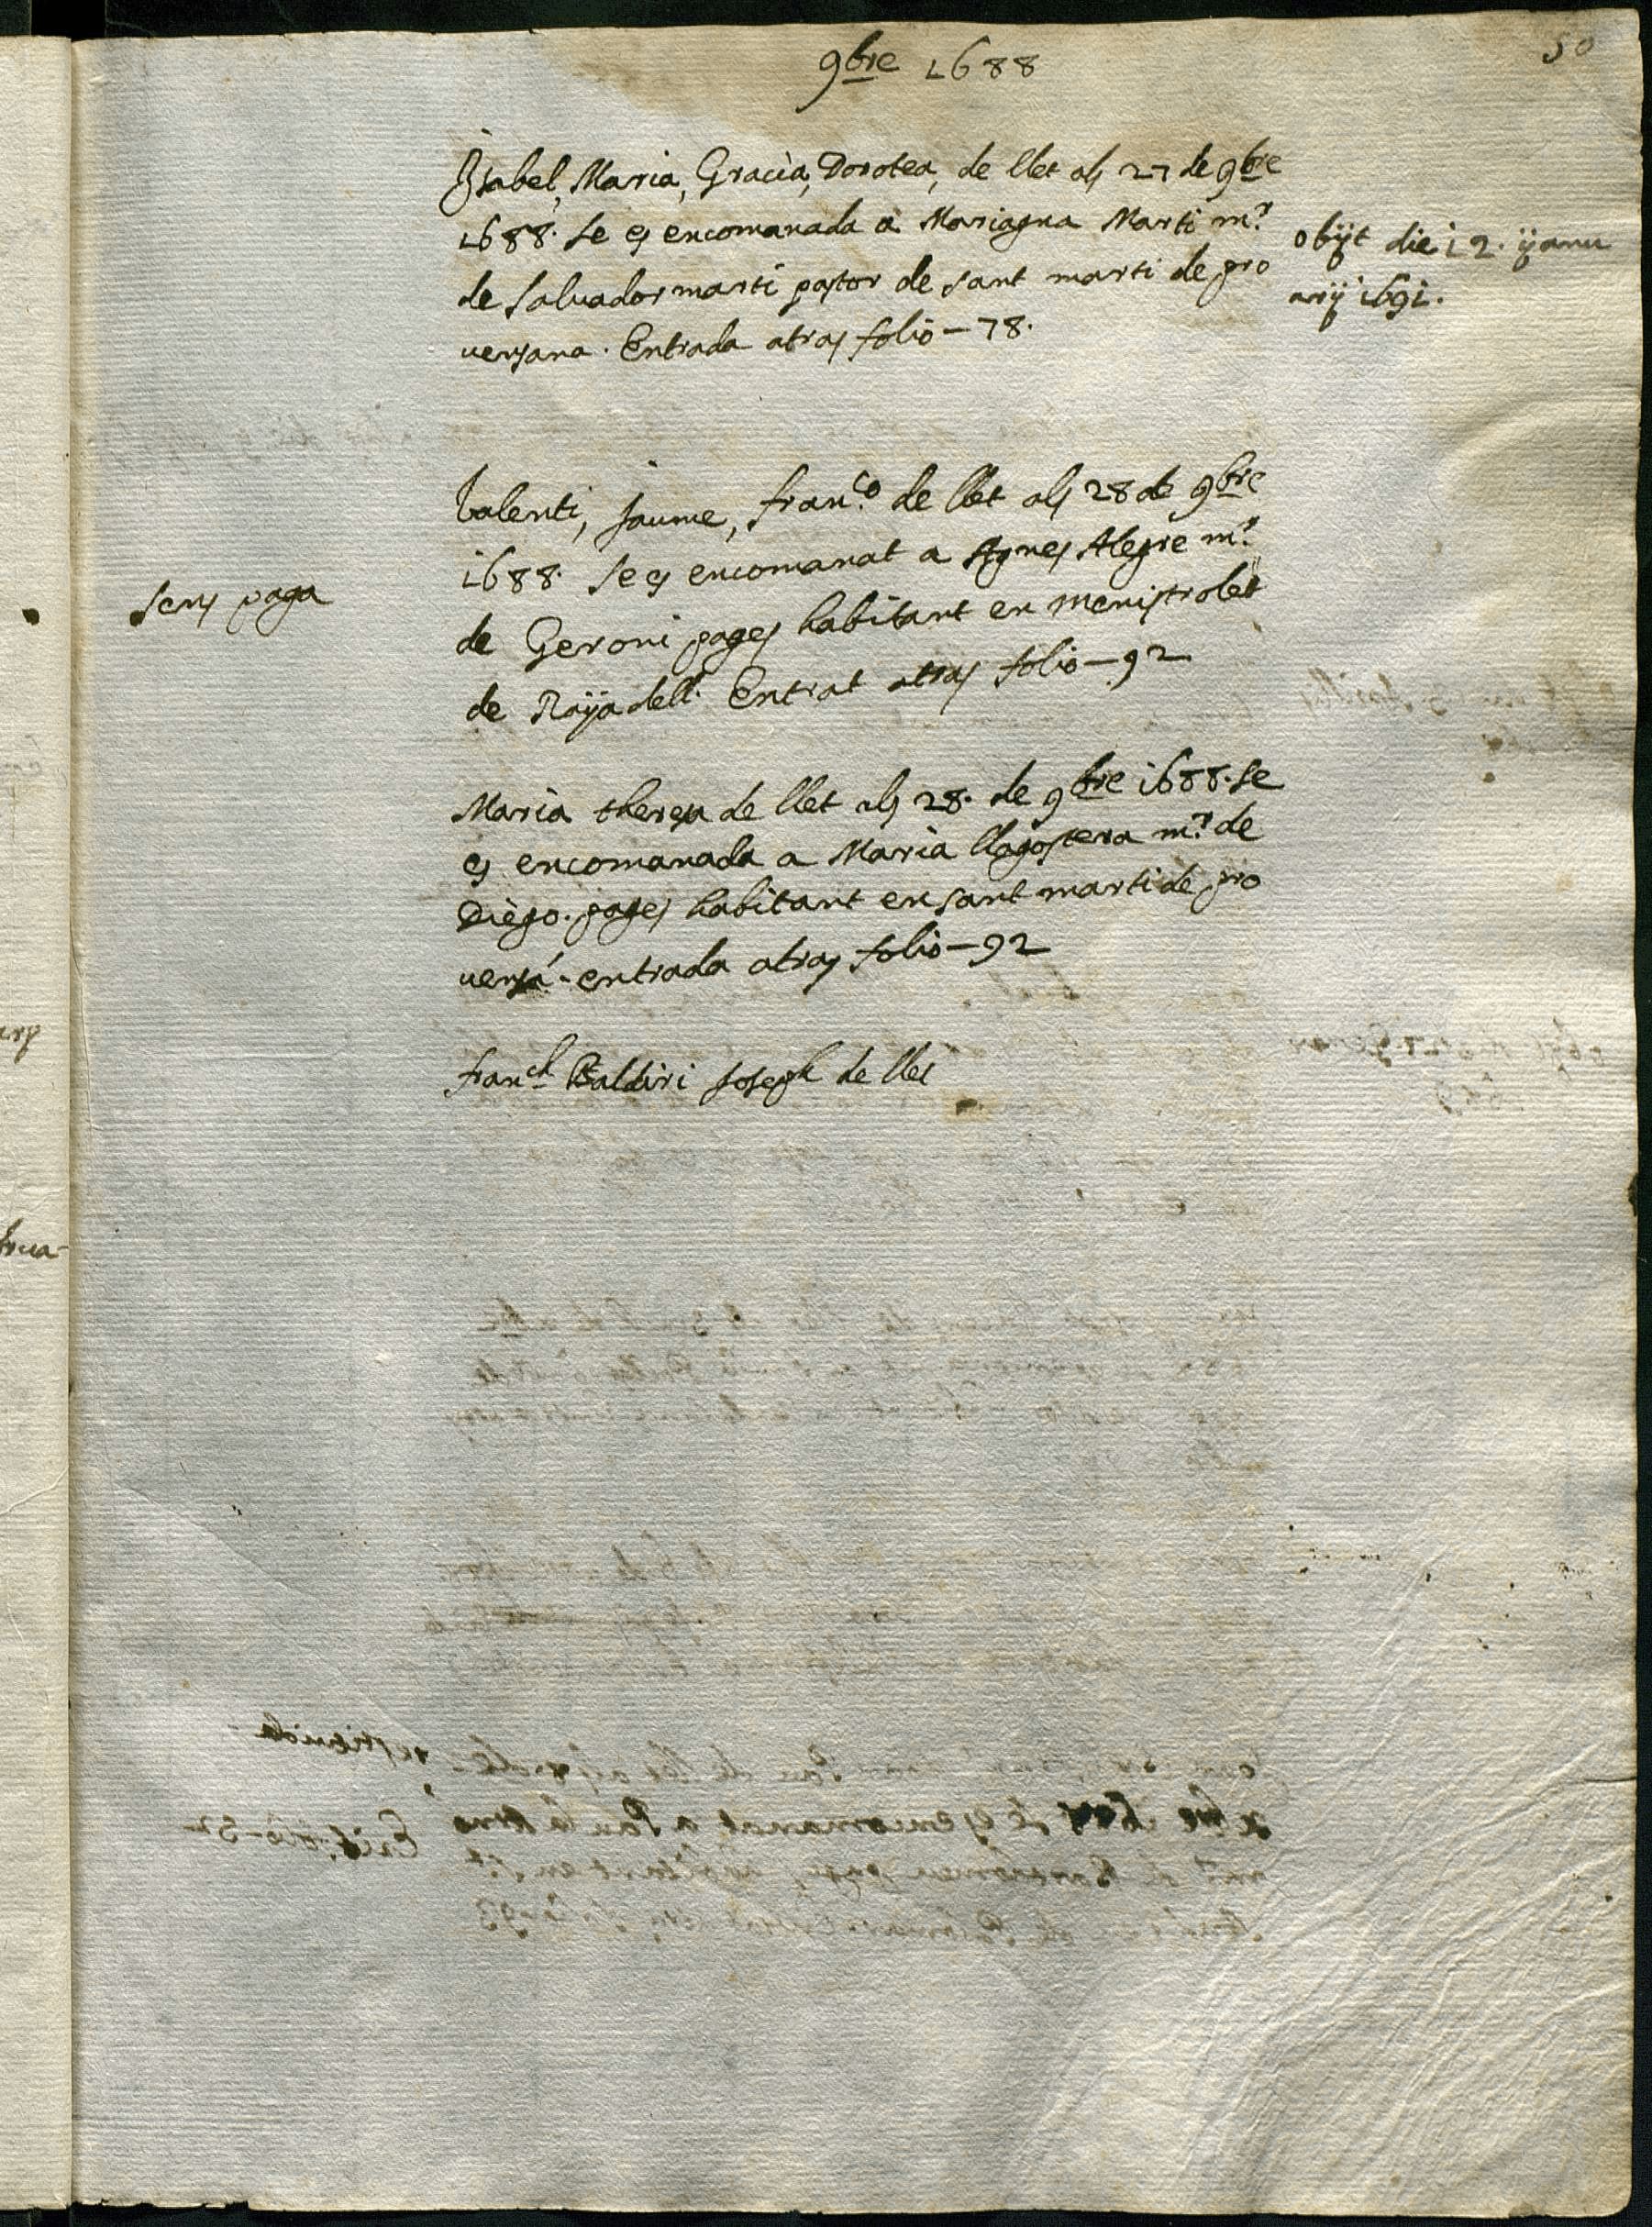 50
9bre 1688
Isabel, Maria, Gracia, Dorotea, de llet als 27 de 9bre
1688. Se es encomanada a Mariagna Marti mr.
de Salvador marti pastor de sant marti de pro
vensana. Entrada atras folio - 78.
obijt die 12. ijanu
arij 1691.
Valenti, Jaume, franco. de llet als 28 de 9bre
1688. Se es encomanat a Agnes Alegre mr.
de Geroni pages habitant en menistrolet
de Raijadell. Entrat atras folio - 92
sens paga
Maria theresa de llet als 28. de 9bre 1688. Se
es encomanada a Maria llagostera mr. de
Diego. pages habitant en sant marti de pro
vensá. entrada atras folio - 92
franch Baldiri Joseph de llet